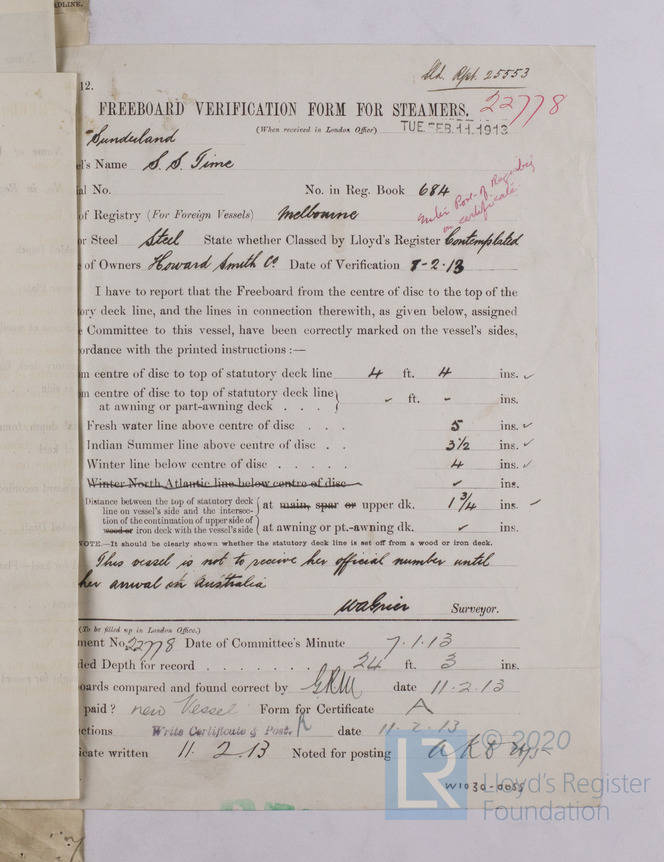 DLINE.
12.
Std. Rpt. 25553
FREEBOARD VERIFICATION FORM FOR STEAMERS. 22778
(When received in London Office) TUE. FEB. 11. 1913
Sunderland
el's Name S.S. Time
al No. No. in Reg. Book 684
of Registry (For Foreign Vessels) Melbourne
Enter Port of Registry
on certificate.
or Steel Steel State whether Classed by Lloyd's Register Contemplated
e of Owners Howard Smith Co. Date of Verification 8-2-13
I have to report that the Freeboard from the centre of disc to the top of the
ory deck line, and the lines in connection therewith, as given below, assigned
e Committee to this vessel, have been correctly marked on the vessel's sides,
ordance with the printed instructions :—
m centre of disc to top of statutory deck line 4 ft. 4 ins. ✓
m centre of disc to top of statutory deck line
at awning or part-awning deck . . . ✓ ft. - ins.
Fresh water line above centre of disc . . . 5 ins. ✓
Indian Summer line above centre of disc . . 3 1/2 ins. ✓
Winter line below centre of disc . . . . . 4 ins. ✓
Winter North Atlantic line below centre of disc ✓ ins.
Distance between the top of statutory deck
line on vessel's side and the intersec-
tion of the continuation of upper side of
wood or iron deck with the vessel's side
at main, spar or upper dk. 1 3/4 ins. ✓
at awning or pt.-awning dk. ✓ ins.
NOTE.—It should be clearly shown whether the statutory deck line is set off from a wood or iron deck.
This vessel is not to receive her official number until
her arrival in Australia
Surveyor.
(To be filled up in London Office.)
ment No. 22778 Date of Committee's Minute 7.1.13
ded Depth for record . . . . . . . 24 ft. 3 ins.
oards compared and found correct by GRM date 11.2.13
paid? new Vessel Form for Certificate A
ctions Write Certificate & Post. R date 11.2.13
icate written 11.2.13 Noted for posting
© 2020
LR Lloyd's Register
Foundation
W1030-0055